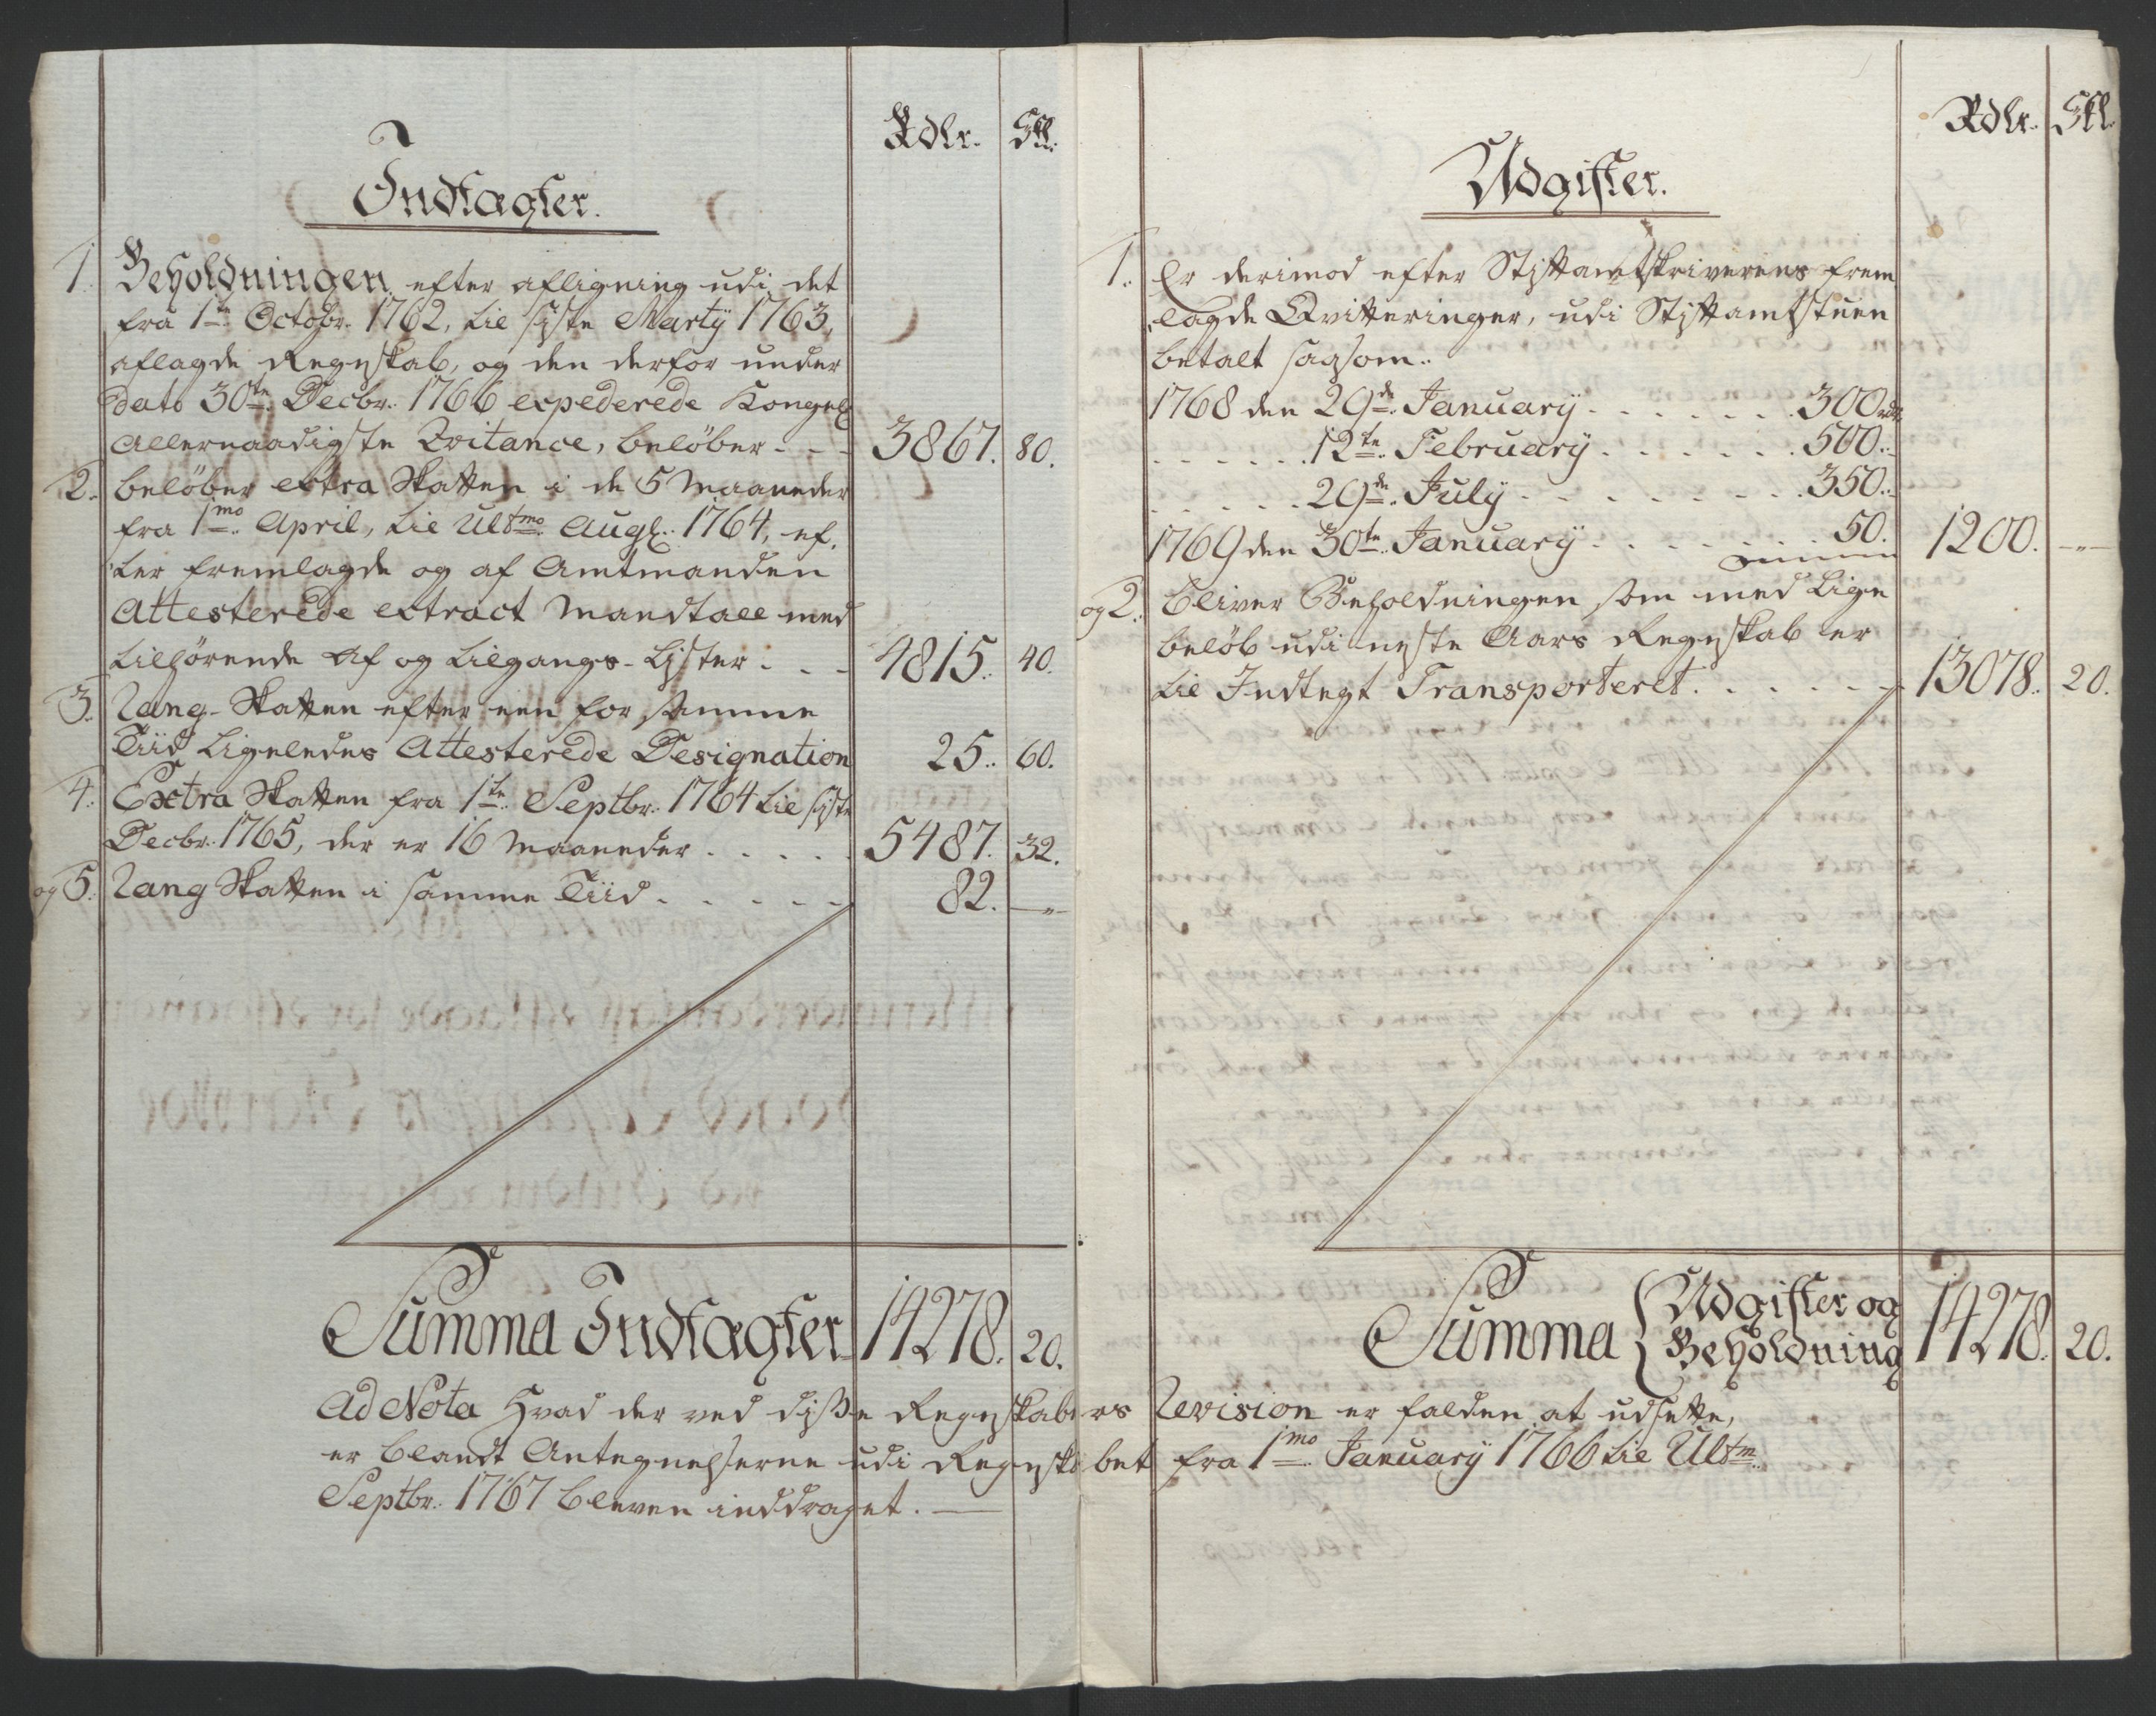 Rdlr. Skl.
Indtægter.
1. Beholdningen efter afligning udi det
fra 1te Octobr. 1762, til siste Martÿ 1763,
aflagde Regnskab, og den derfor under
dato 30te Decbr. 1766 expederede Kongel.
allernaadigste Qvitance, beløber - - - 3867. 80.
2. beløber extra Skatten i de 5 Maaneder
fra 1mo April, til Ultmo Aug. 1764, ef-
ter fremlagde og af Amtmanden
Attesterede extract Mandtall med
tilhørende Af og tilgangs-Lister - - - 4815. 40.
3. Rang-Skatten efter een for samme
Tiid ligeledes Attesterede Designation 25. 60.
4. Extra Skatten fra 1te Septbr. 1764 til siste
Decbr. 1765, der er 16 Maaneder . . . . . 5487. 32.
og 5. Rang Skatten i samme Tiid . - - - - 82. -„-
Summa Indtægter 14278. 20.
Rdlr. Skl.
Udgifter.
1. Er derimod efter Stiftamtskriverens frem
lagde Qvitteringer, udi Stiftamtstuen
betalt saasom:
1768 den 29de January . . . . . . . 300 rdr
. . . . . 12te February . . . . . . 500.-
. . . . . 29de July . . . . . . . . 350.-
1769 den 30te January . . . . . . . 50. 1200. -„-
og 2. bliver Beholdningen som med lige
beløb udi neste Aars Regnskab er
til Indtegt Transporteret . . . . . . 13078. 20.
Summa { Udgifter og
Beholdning 14278. 20.
Ad Nota Hvad der ved disse Regnskabers Revision er falden at udsette,
er blandt Antegnelserne udi Regnskabet fra 1mo January 1766 til Ultm.
Septbr. 1767 bleven inddraget. —